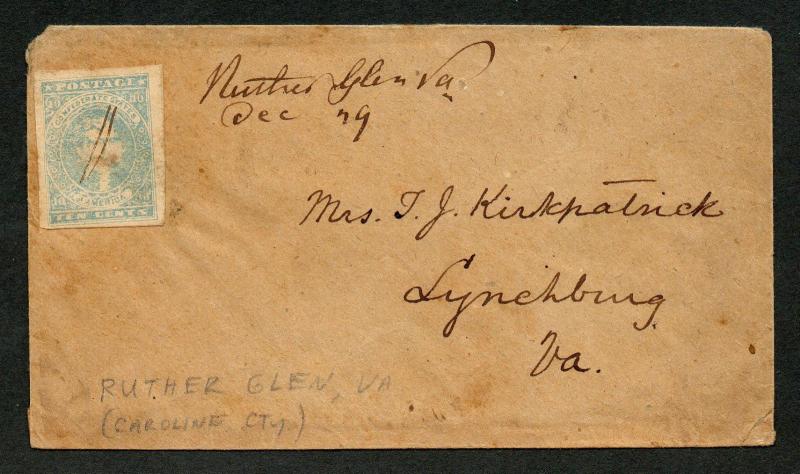 POSTAGE
10 10
CONFEDERATE STATES
OF AMERICA
10
TEN CENTS
Ruther Glen Va
Dec 29
Mrs. T. J. Kirkpatrick
Lynchburg
Va.
RUTHER GLEN, VA
(CAROLINE CTY.)